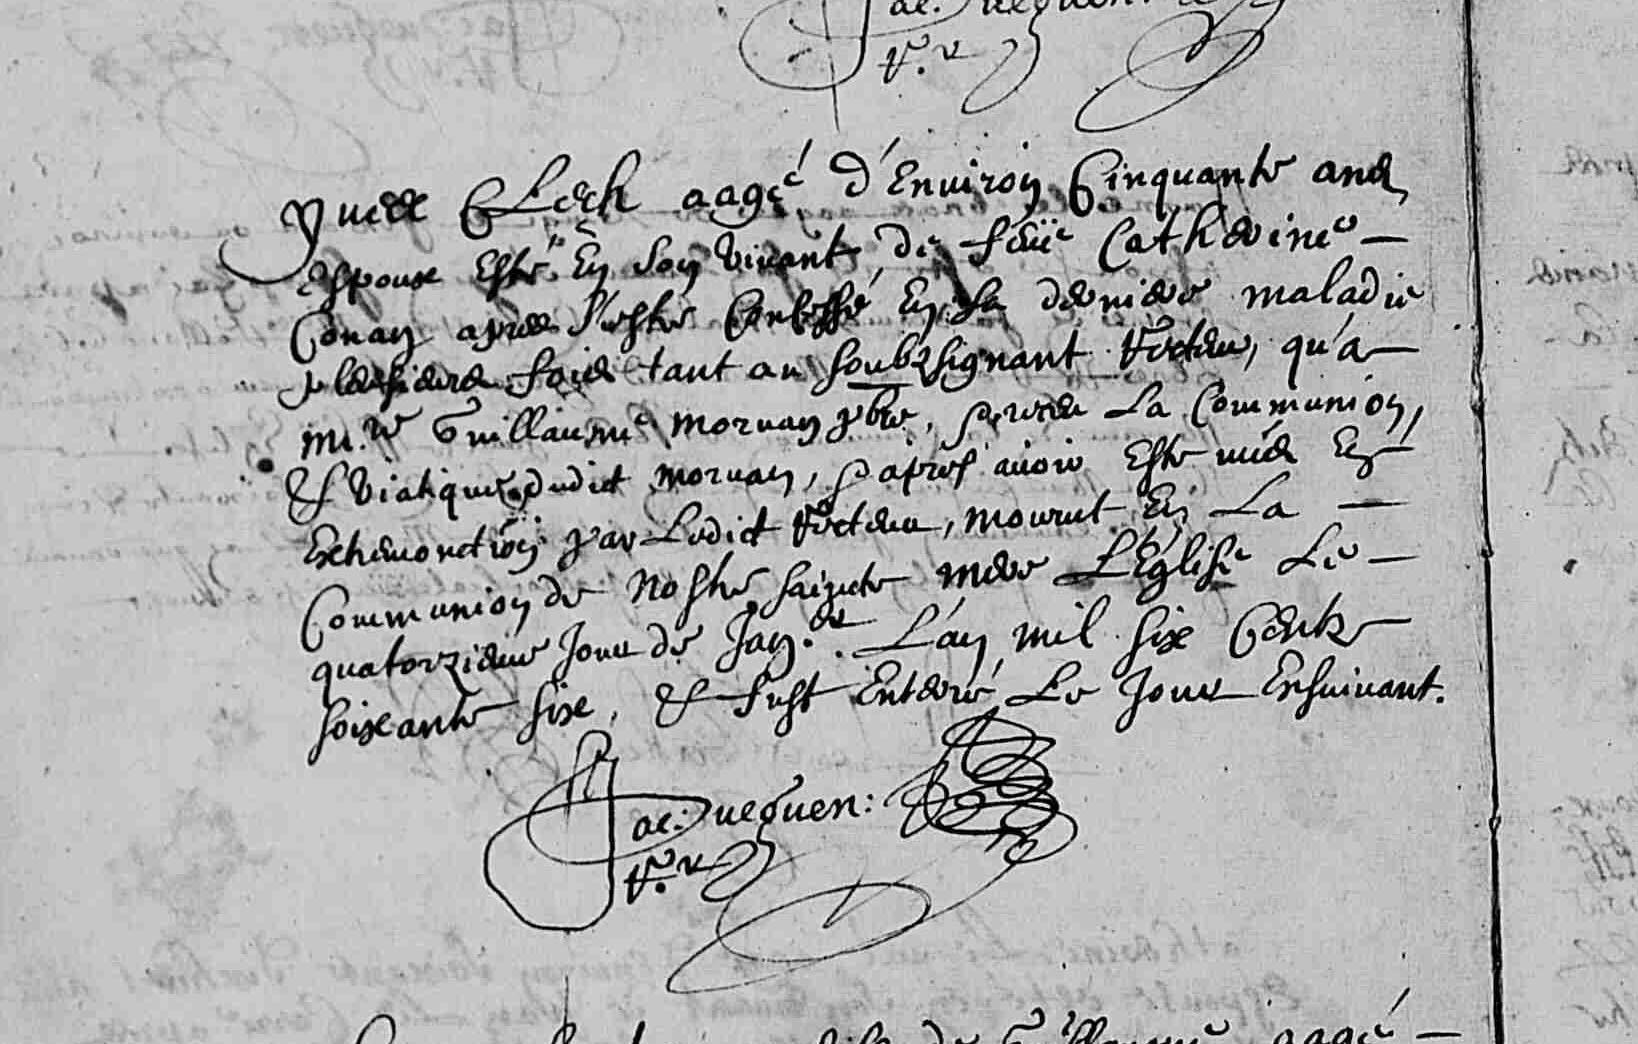 Jac: Gueguen:
r.r
Yues CLech aagé d'Enuiron Cinquante ans
Espoux Esté En son viuant de feüe Catherine
Conan apres s'estre Confessé En sa derniere maladie
plusieurs fois tant au soubzsignant Recteur, qu'a
m.re Guillaume moruan pbre, receu La Communion,
& viatique dudict moruan, & apres auoir Esté mis En
Extremonction par Ledict Recteur, mourut En La
Communion de nostre saincte mere L'Eglise Le
quatorzieme Jour de Jan.er L'an mil six Centz
soixante six, & fust Enterré Le Jour Ensuiuant.
Jac: Gueguen:
r.r
de Guillaume aagé